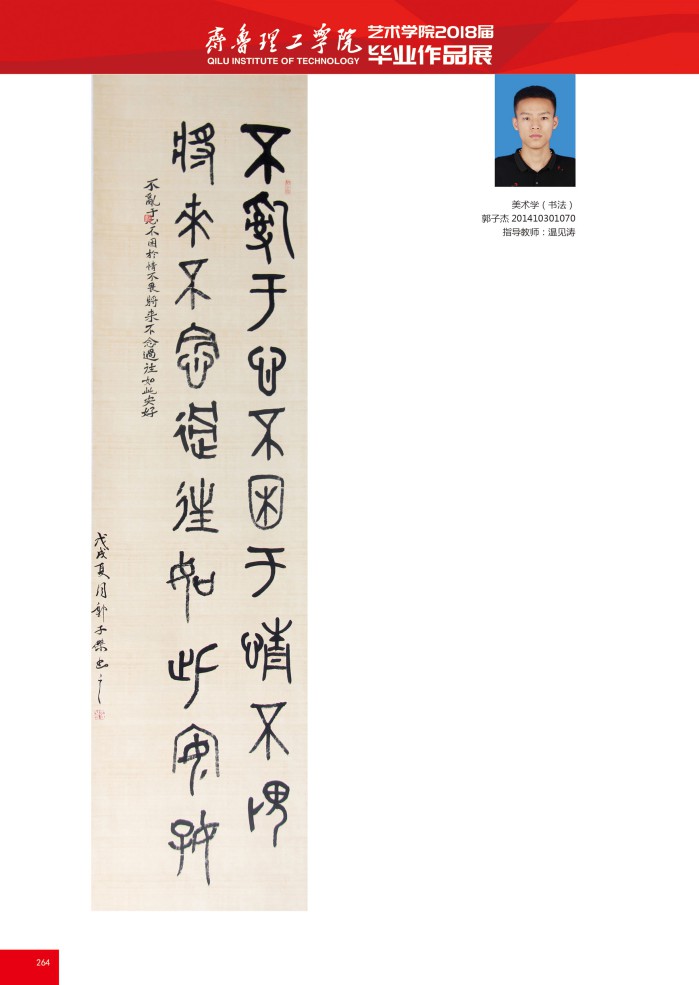 齊魯理工學院
QILU INSTITUTE OF TECHNOLOGY
艺术学院2018届
毕业作品展
美术学（书法）
郭子杰 201410301070
指导教师：温见涛
不亂于心不困于情不畏
將來不念過往如此安好
不亂于心不困於情不畏將来不念過往如此安好
戊戌夏月郭子傑書
264